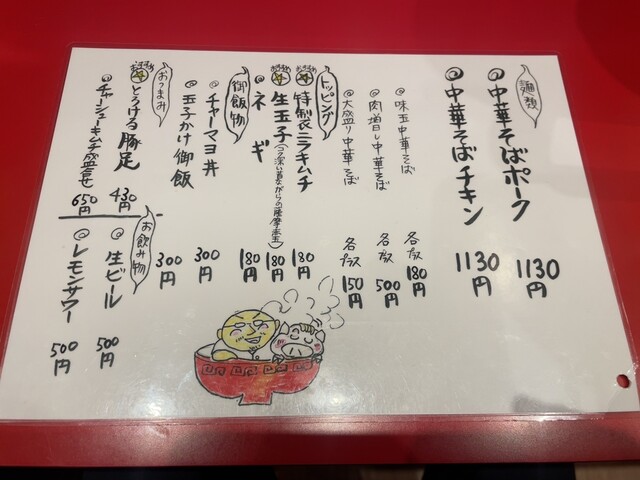 麺類
◎中華そばポーク 1130円
◎中華そばチキン 1130円
◎味玉中華そば 各プラス180円
◎肉増し中華そば 各プラス500円
◎大盛り中華そば 各プラス150円
トッピング
おすすめ 特製ニラキムチ 180円
おすすめ 生玉子(コク深い昔ながらの薩摩赤玉) 180円
◎ネギ 180円
御飯物
◎チャーマヨ丼 300円
◎玉子かけ御飯 300円
おつまみ
おすすめ とろける豚足 430円
◎チャーシューキムチ盛合せ 650円
お飲み物
◎生ビール 500円
◎レモンサワー 500円